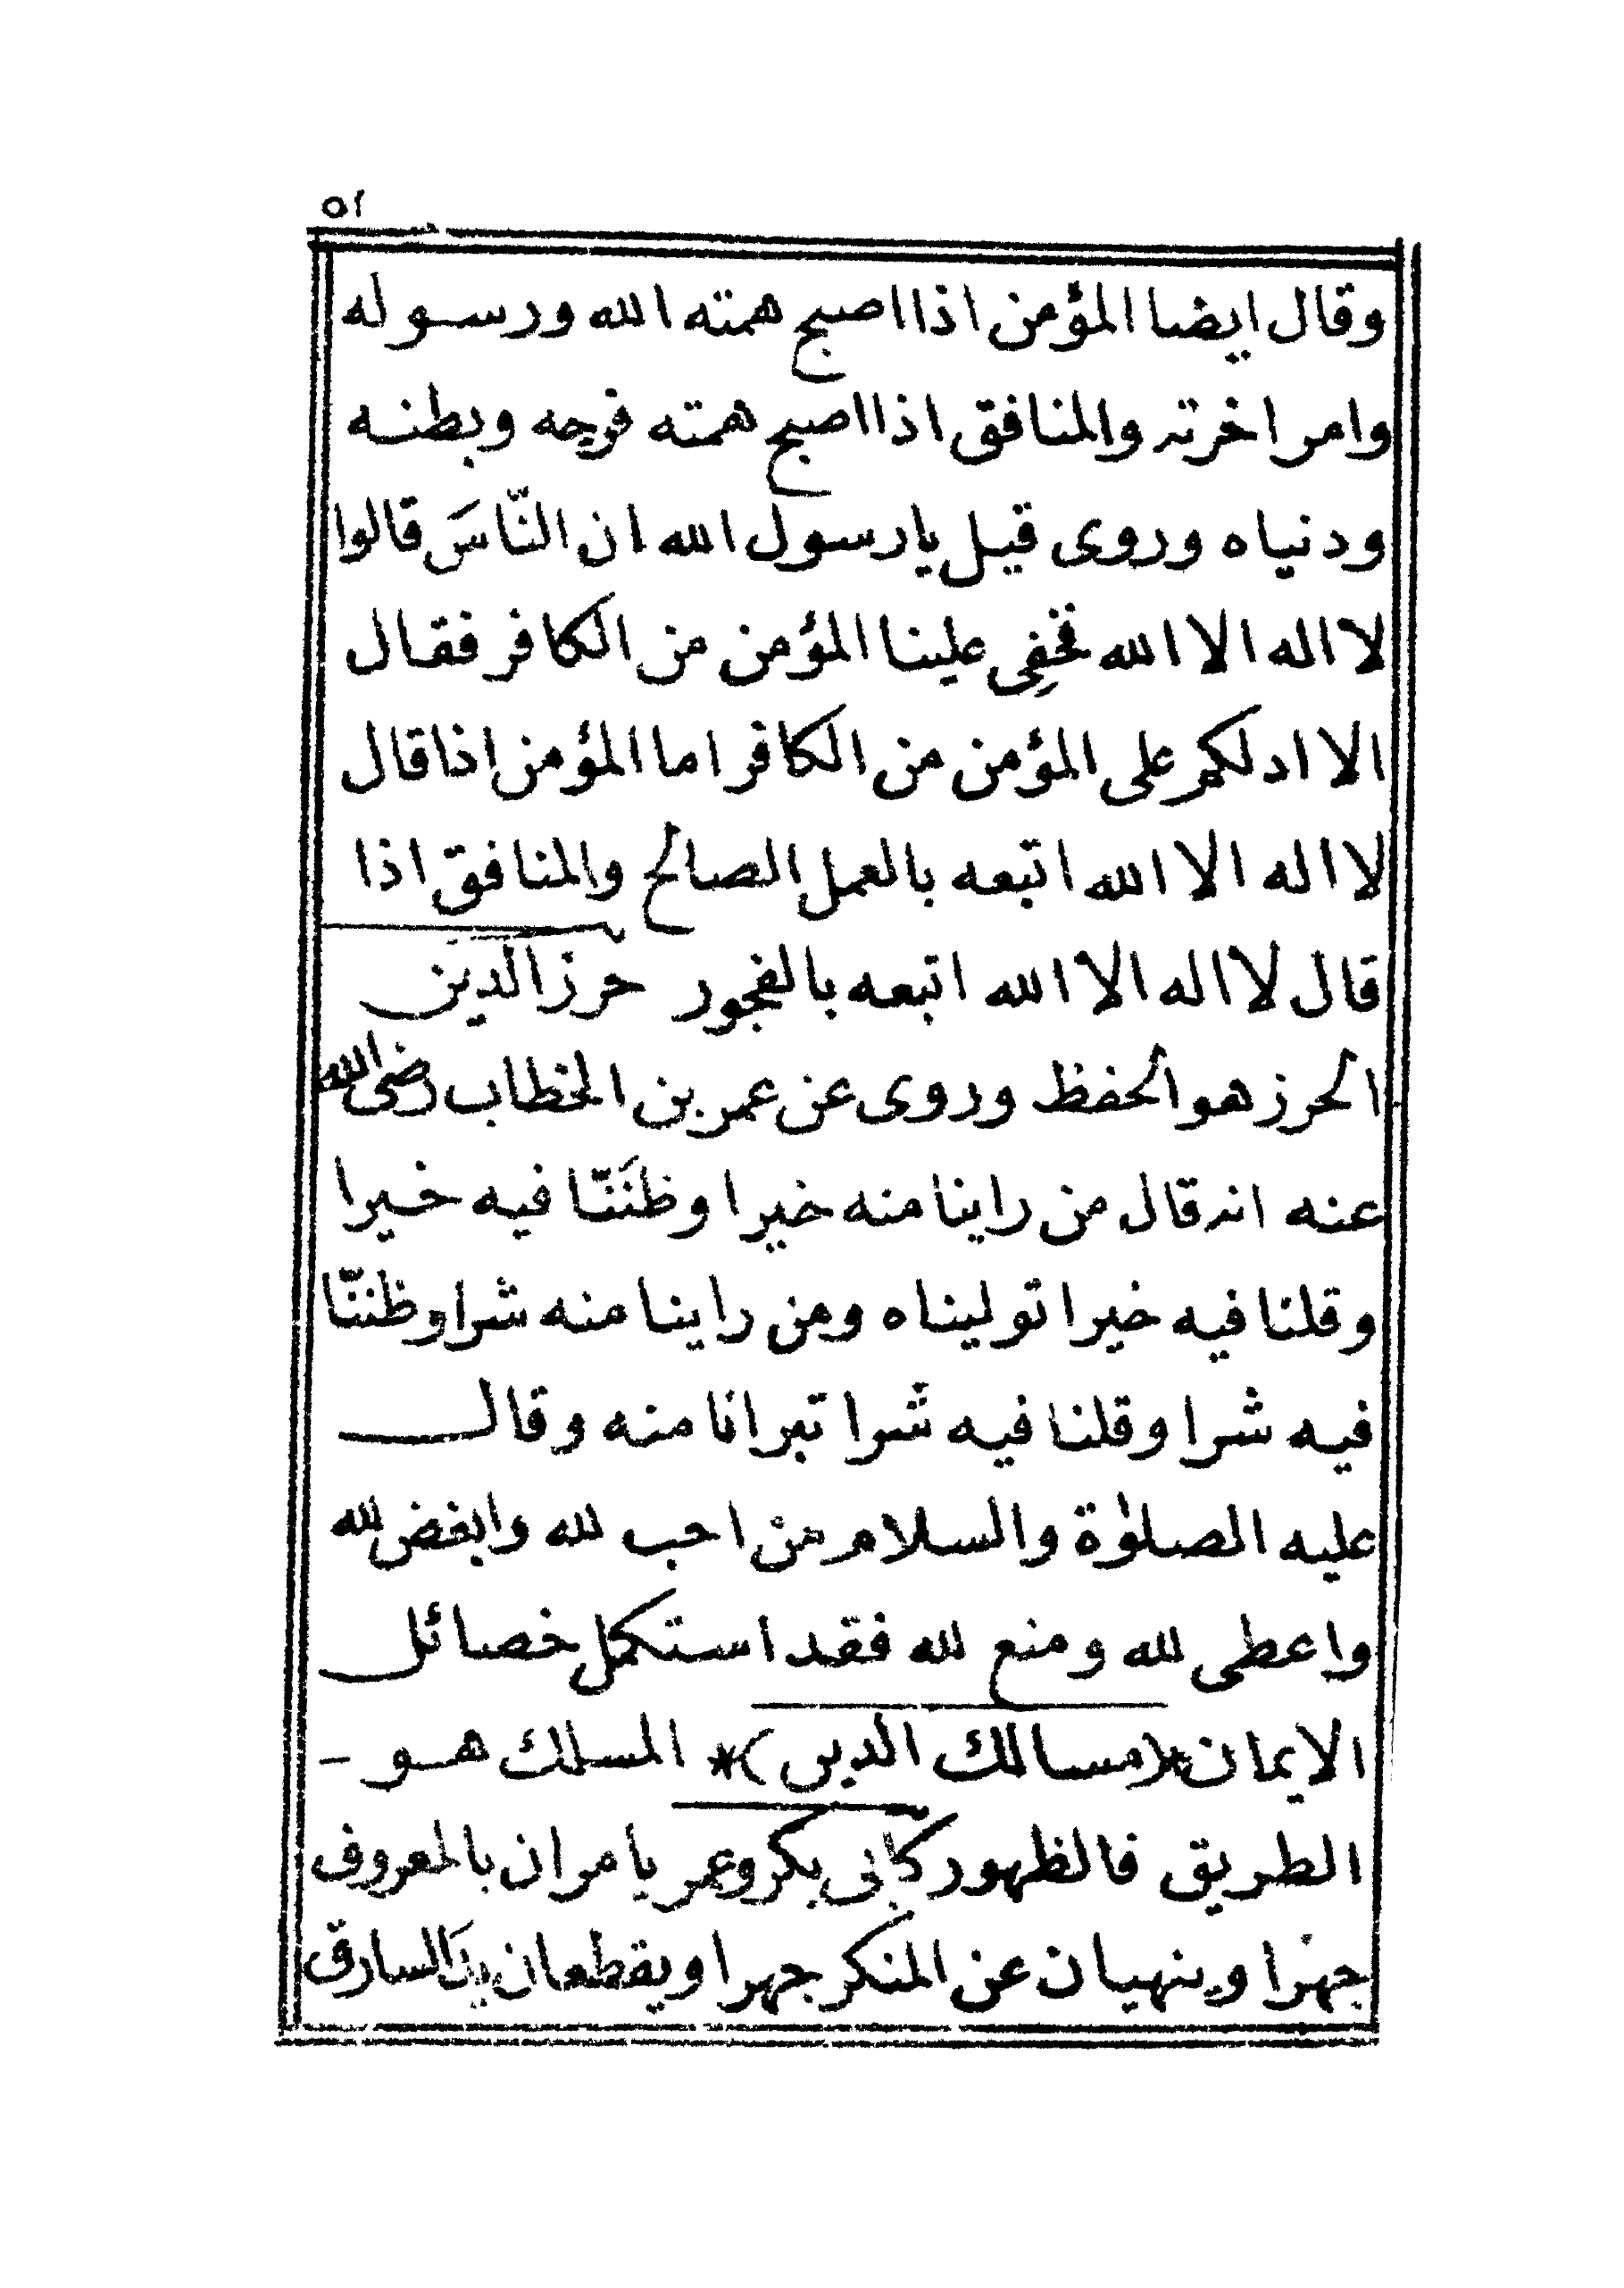 ٥٢
وقال ايضا المؤمن اذا اصبح همته الله ورسوله
وامر اخرته والمنافق اذا اصبح همته فرجه وبطنه
ودنياه وروى قيل يا رسول الله ان النّاسَ قالوا
لا اله الا الله تخفى علينا المؤمن من الكافر فقال
الا ادلكم على المؤمن من الكافر اما المؤمن اذا قال
لا اله الا الله اتبعه بالعمل الصالح والمنافق اذا
قال لا اله الا الله اتبعه بالفجور حرز الدين
الحرز هو الحفظ وروى عن عمر بن الخطاب رضى الله
عنه انه قال من راينا منه خيرا وظنَنّا فيه خيرا
وقلنا فيه خيرا توليناه ومن راينا منه شرا وظننّا
فيه شرا وقلنا فيه شرا تبرانا منه وقال
عليه الصلوٰة والسلام من احب لله وابغض لله
واعطى لله ومنع لله فقد استكمل خصائل
الايمان *(مسالك الدين)* المسلك هو -
الطريق فالظهور كابى بكر وعمر يامران بالمعروف
جهرا وينهيان عن المنكر جهرا ويقطعان يدَ السارق